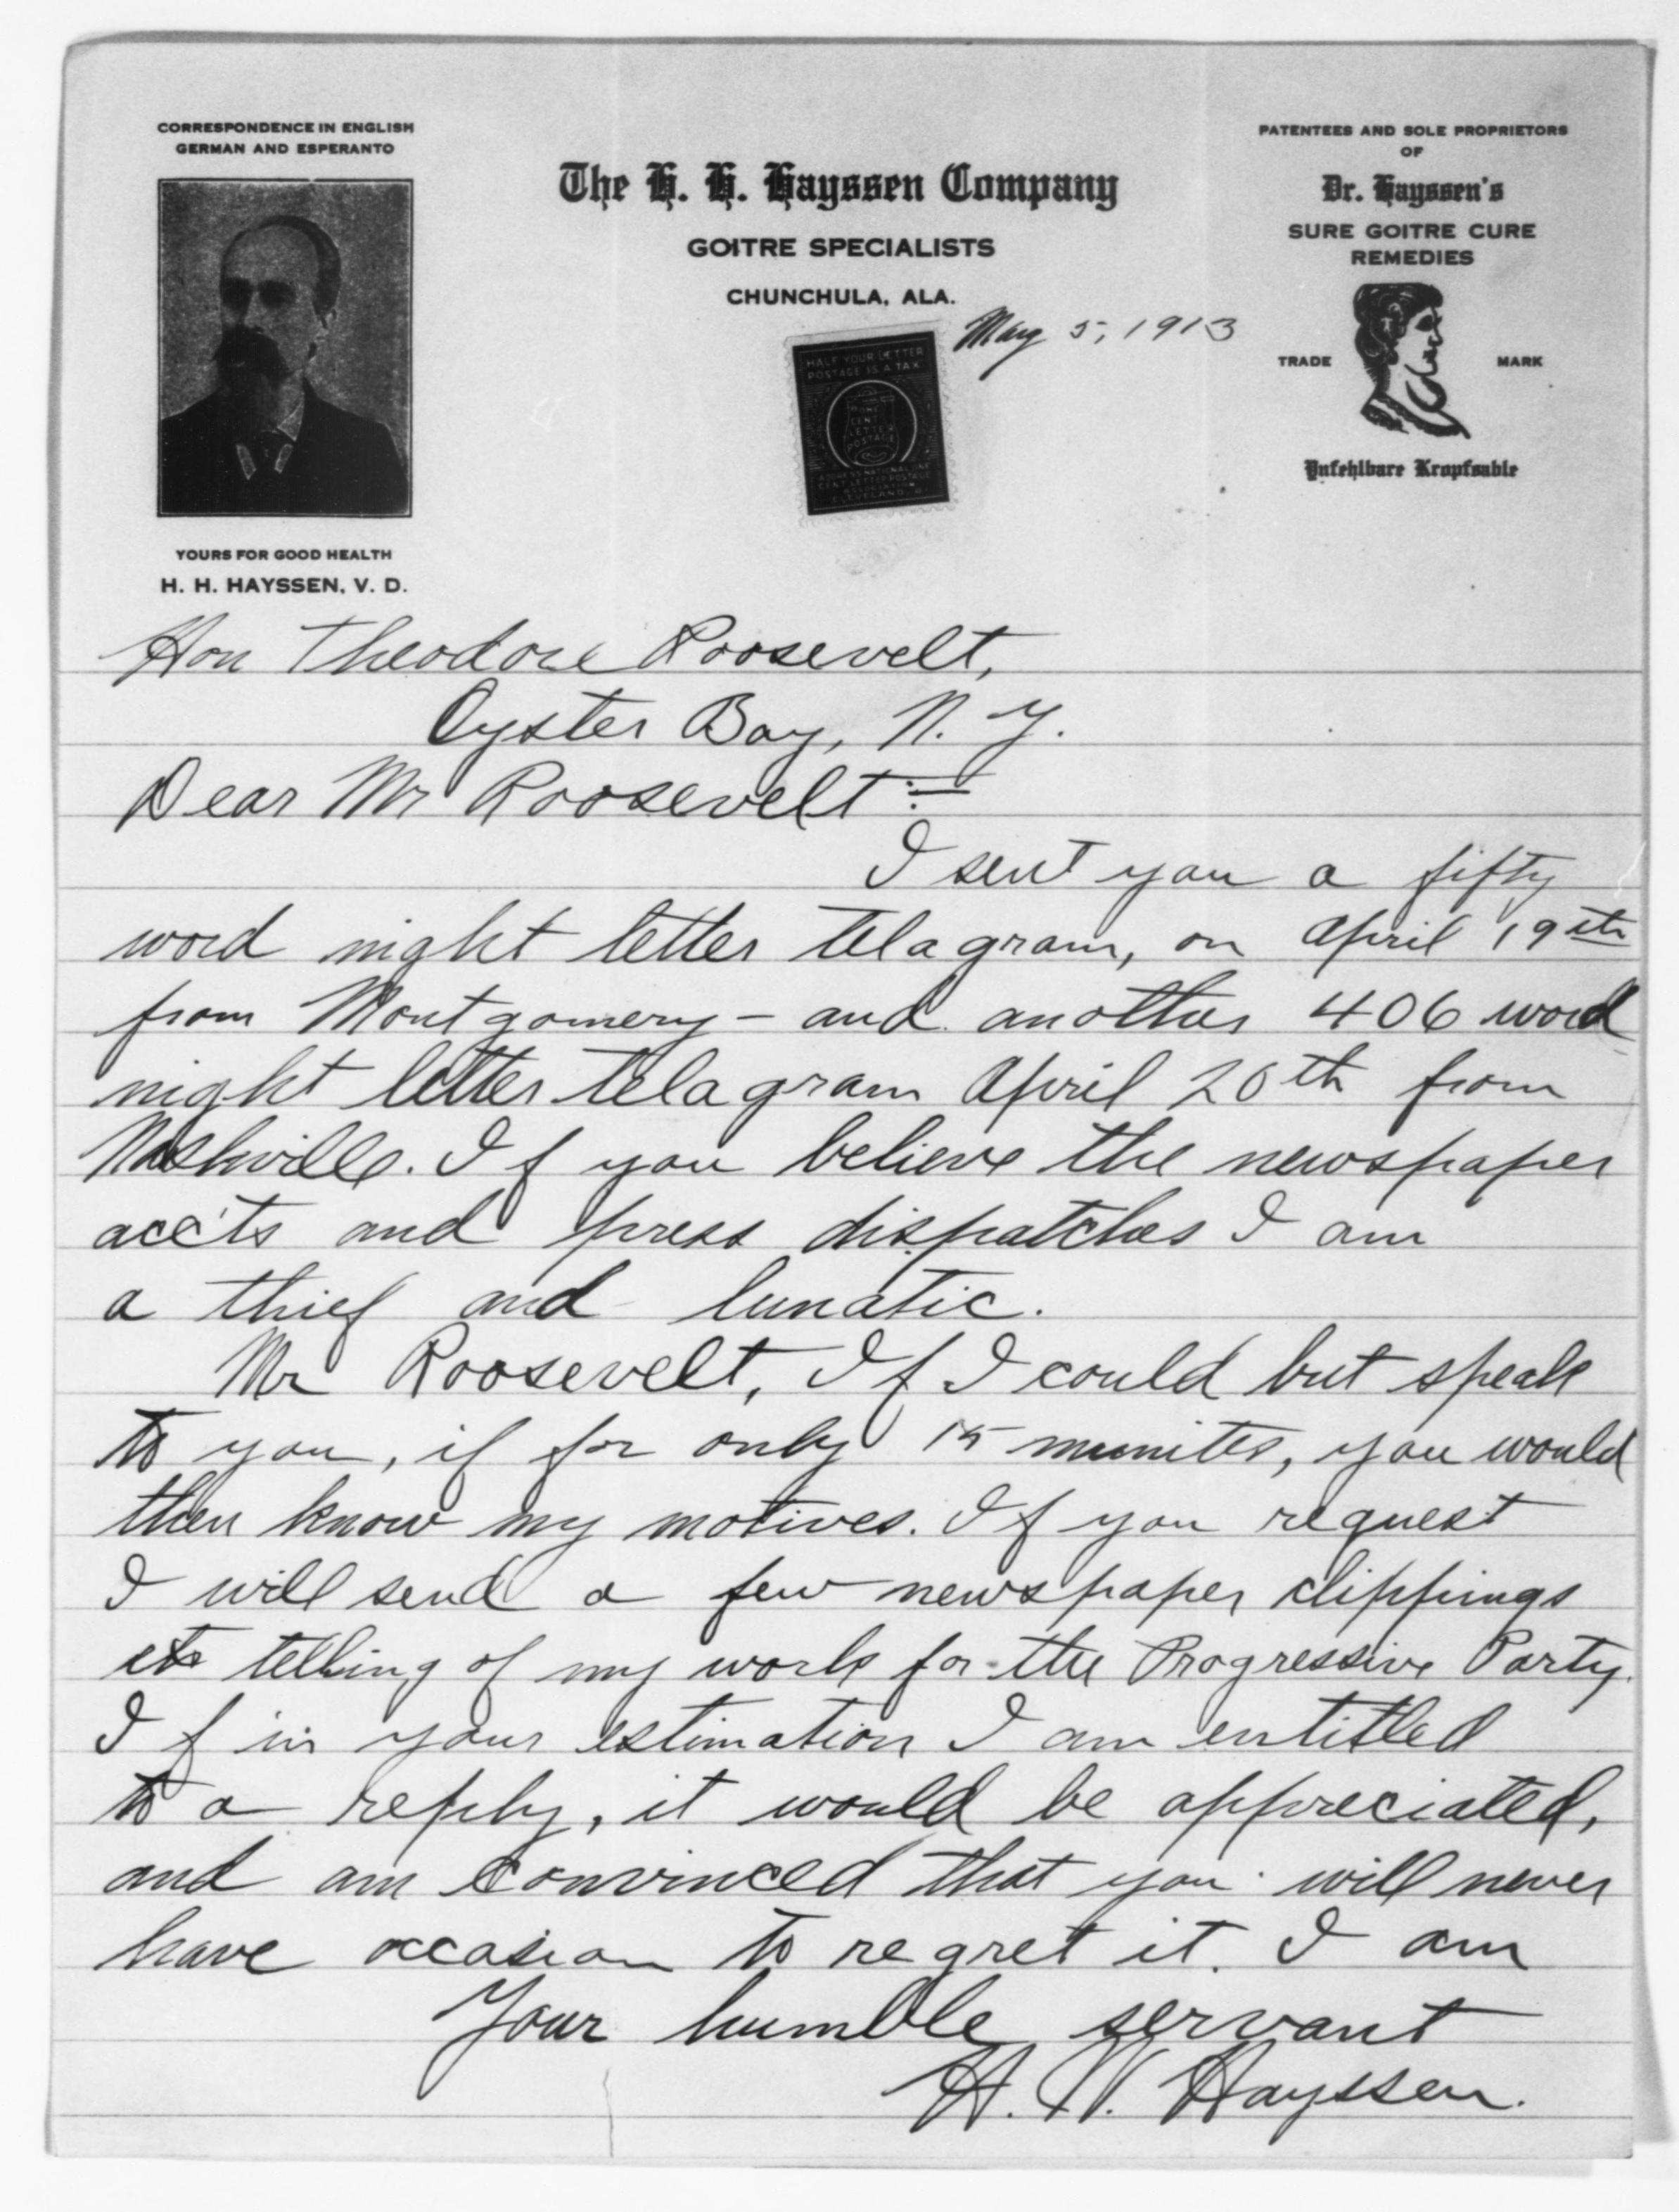 CORRESPONDENCE IN ENGLISH
GERMAN AND ESPERANTO
YOURS FOR GOOD HEALTH
H. H. HAYSSEN, V. D.
The H. H. Hayssen Company
GOITRE SPECIALISTS
CHUNCHULA, ALA.
May 5, 1913
HALF YOUR LETTER
POSTAGE IS A TAX
ONE
CENT
LETTER
POSTAGE
NATIONAL ONE
CENT LETTER POSTAGE
ASSOCIATION
CLEVELAND, O.
PATENTEES AND SOLE PROPRIETORS
OF
Dr. Hayssen's
SURE GOITRE CURE
REMEDIES
TRADE MARK
Unfehlbare Kropfsalbe
Hon Theodore Roosevelt,
Oyster Bay, N. Y.
Dear Mr Roosevelt:=
I sent you a fifty
word night letter telagram, on April 19th
from Montgomery - and another 406 word
night letter telagram April 20th from
Nashville. If you believe the newspaper
acc'ts and press dispatches I am
a thief and lunatic.
Mr Roosevelt, If I could but speak
to you, if for only 15 munites, you would
then know my motives. If you request
I will send a few newspaper clippings
etc telling of my work for the Progressive Party.
If in your estimation I am entitled
to a reply, it would be appreciated,
and am convinced that you will never
have occasion to regret it. I am
Your humble servant
H. W. Hayssen.